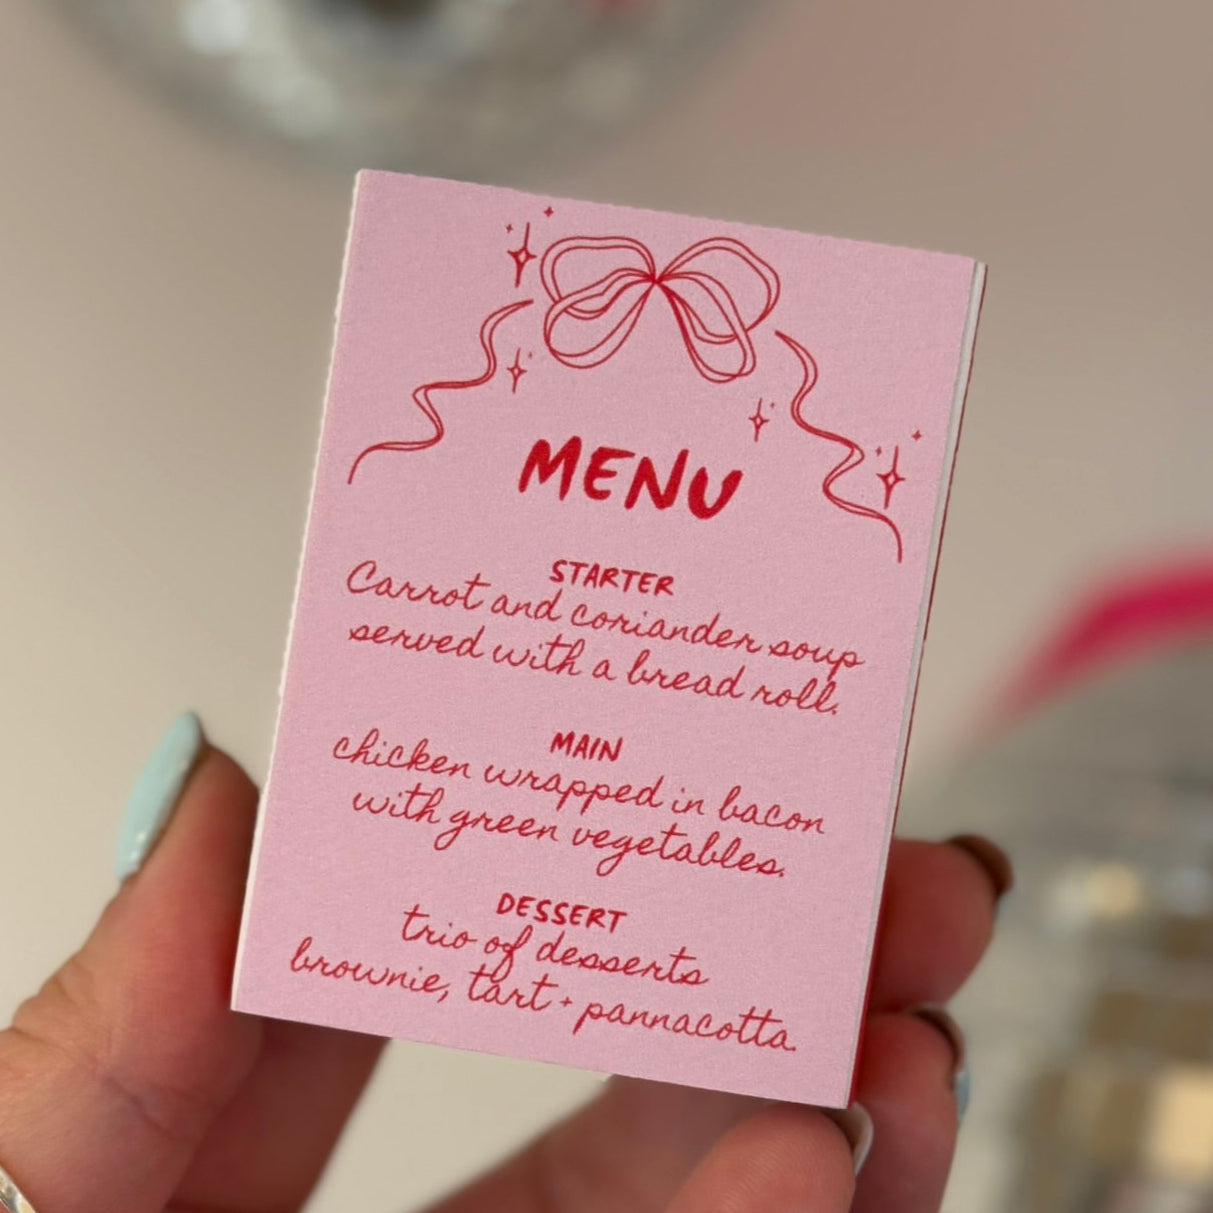 MENU
STARTER
Carrot and coriander soup
served with a bread roll.
MAIN
chicken wrapped in bacon
with green vegetables.
DESSERT
trio of desserts
brownie, tart + pannacotta.